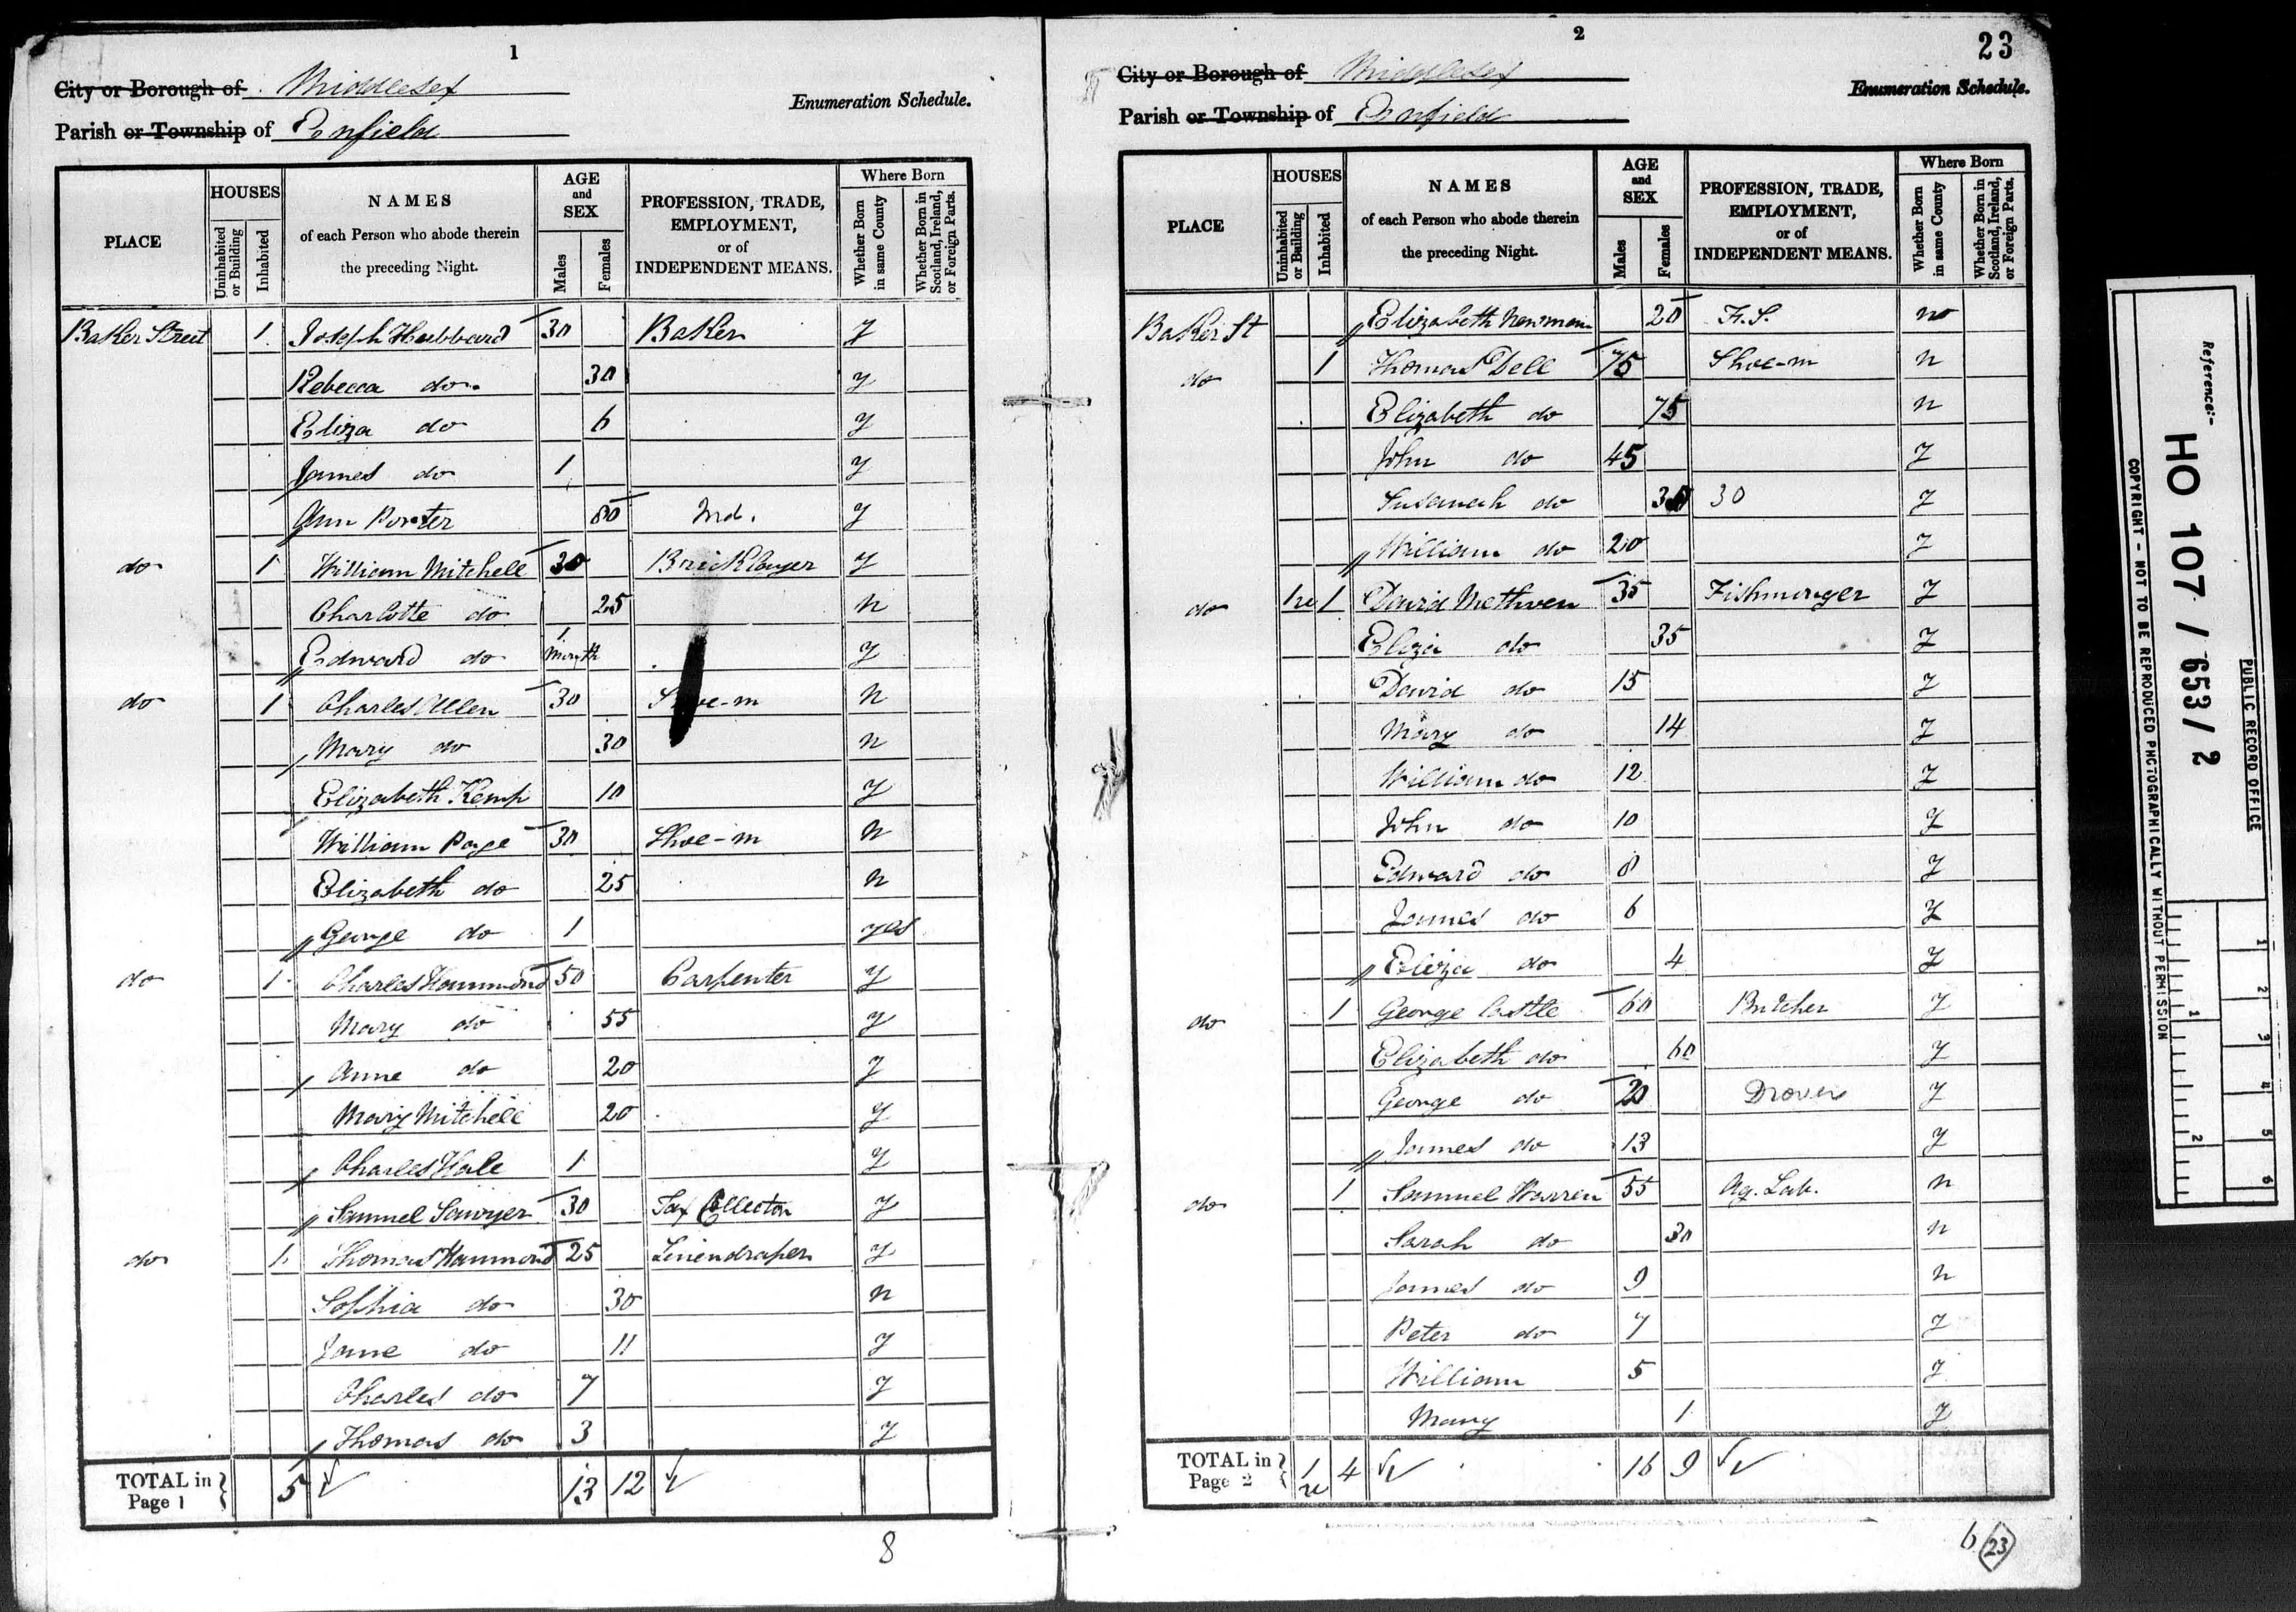 1
City or Borough of Middlesex
Enumeration Schedule.
Parish or Township of Enfield
PLACE HOUSES Uninhabited or Building Inhabited NAMES of each Person who abode therein the preceding Night. AGE and SEX Males Females PROFESSION, TRADE, EMPLOYMENT, or of INDEPENDENT MEANS. Where Born Whether Born in same County Whether Born in Scotland, Ireland, or Foreign Parts.
Baker Street 1 Joseph Hubbard 30 Baker y
Rebecca do 30 y
Eliza do 6 y
James do 1 y
Ann Porter 80 Ind. y
do 1 William Mitchell 30 Bricklayer y
Charlotte do 25 n
Edward do 1 Month y
do 1 Charles Allen 30 Shoe-m n
Mary do 30 n
Elizabeth Kemp 10 y
William Page 30 Shoe-m n
Elizabeth do 25 n
George do 1 yes
do 1 Charles Hammond 50 Carpenter y
Mary do 55 y
Anne do 20 y
Mary Mitchell 20 y
Charles Hale 1 y
Samuel Sawyer 30 Tax Collector y
do 1 Thomas Hammond 25 Linendraper y
Sophia do 30 n
Jane do 11 y
Charles do 7 y
Thomas do 3 y
TOTAL in Page 1 5 13 12
8
2
23
City or Borough of Middlesex
Enumeration Schedule.
Parish or Township of Enfield
PLACE HOUSES Uninhabited or Building Inhabited NAMES of each Person who abode therein the preceding Night. AGE and SEX Males Females PROFESSION, TRADE, EMPLOYMENT, or of INDEPENDENT MEANS. Where Born Whether Born in same County Whether Born in Scotland, Ireland, or Foreign Parts.
Baker St Elizabeth Newman 20 F.S. no
do 1 Thomas Dell 75 Shoe-m n
Elizabeth do 75 n
John do 45 y
Susannah do 30 30 y
William do 20 y
do 1u 1 David Methven 35 Fishmonger y
Eliza do 35 y
David do 15 y
Mary do 14 y
William do 12 y
John do 10 y
Edward do 8 y
James do 6 y
Eliza do 4 y
do 1 George Castle 60 Butcher y
Elizabeth do 60 y
George do 20 Drover y
James do 13 y
do 1 Samuel Warren 55 Ag. Lab. n
Sarah do 30 n
James do 9 n
Peter do 7 y
William 5 y
Mary 1 y
TOTAL in Page 2 1 u 4 16 9
6 23
Reference:-
HO 107 / 653 / 2
PUBLIC RECORD OFFICE
COPYRIGHT - NOT TO BE REPRODUCED PHOTOGRAPHICALLY WITHOUT PERMISSION
1 2
1 2 3 4 5 6